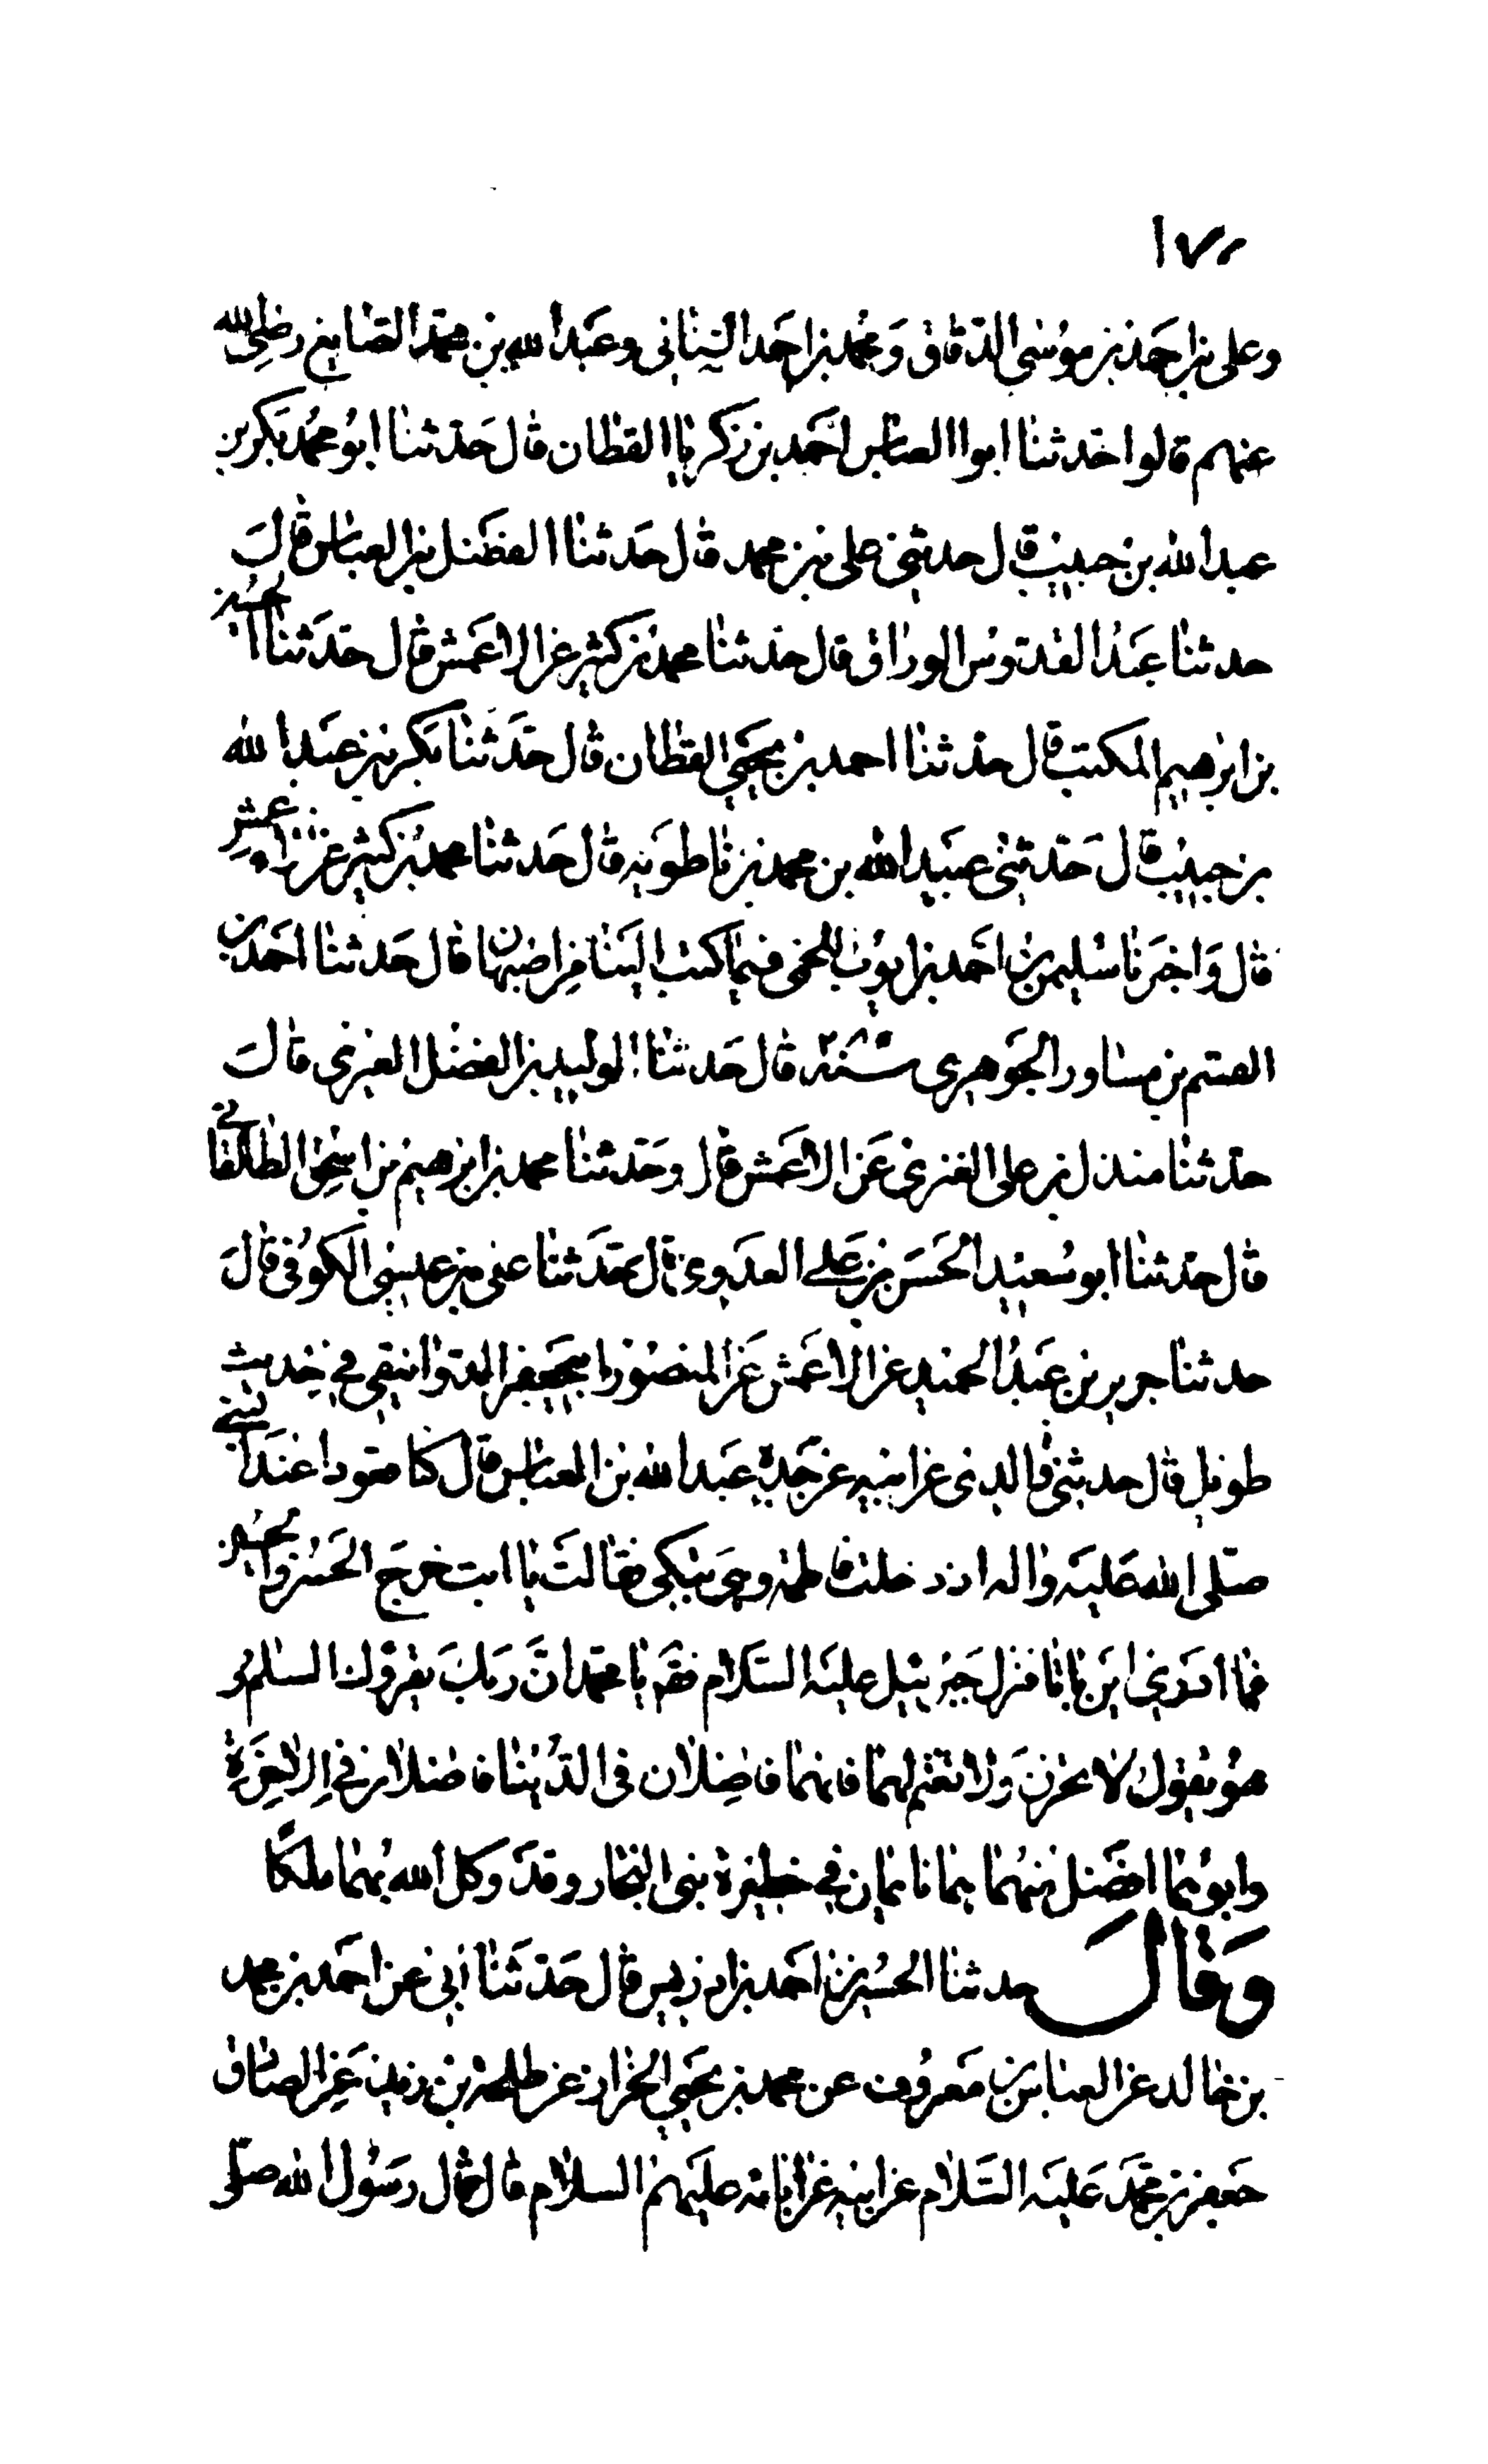 ١٧٠
وعلى بن احمد بن موسى الدقاق ومحمد بن احمد السنانى وعبدالله بن محمد الصايغ رضى الله
عنهم قالوا حدثنا ابوا العباس احمد بن زكريا القطان قال حدثنا ابو محمد بكر بن
عبدالله بن حبيب قال حدثنى على بن محمد قال حدثنا الفضل بن العباس قال
حدثنا عبد القدوس الوراق قال حدثنا محمد بن كثير عن الاعمش قال حدثنا الحسين
بن ابرهيم المكتب قال حدثنا احمد بن يحيى القطان قال حدثنا بكر بن عبدالله
بن حبيب قال حدثنى عبيدالله بن محمد بن ناطويه قال حدثنا محمد بن كثير عن الاعمش
قال واخبرنا سليمن بن احمد بن ايوب اللخمى فيما كتب الينا من اصبهان قال حدثنا احمد بن
القسم بن مساور الجوهرى سنة قال حدثنا الوليد بن الفضل العنزى قال
حدثنا مندل بن على العنزى عن الاعمش قال وحدثنا محمد بن ابرهيم بن اسحق الطالقانى
قال حدثنا ابو سعيد الحسن بن على العدوى قال حدثنا على بن عيسى الكوفى قال
حدثنا جرير بن عبد الحميد عن الاعمش عن المنصور ابيجعفر الدوانيقى فى حديث
طويل قال حدثنى والدى عن ابيه عن جده عبدالله بن العباس قال كنا قعودا عند النبى
صلى الله عليه واله اذ دخلت فاطمة وهى تبكى فقالت يا ابت خرج الحسن والحسين
فما ادرى اين باتا فنزل جبرئيل عليه السلام فقال يا محمد ان ربك يقرؤك السلم و
هو يقول لا تحزن ولا تغتم لهما فانهما فاضلان فى الدنيا فاضلان فى الاخرة
وابوهما افضل منهما هما نائمان فى حظيرة بنى النجار وقد وكل الله بهما ملكا
وقال حدثنا الحسين بن احمد بن ادريس قال حدثنا ابى عن احمد بن محمد
بن خالد عن العباس بن معروف عن محمد بن يحيى الخزاز عن طلحة بن زيد عن الصادق
جعفر بن محمد عليه السلام عن ابيه عن ابائه عليهم السلام قال قال رسول الله صلى